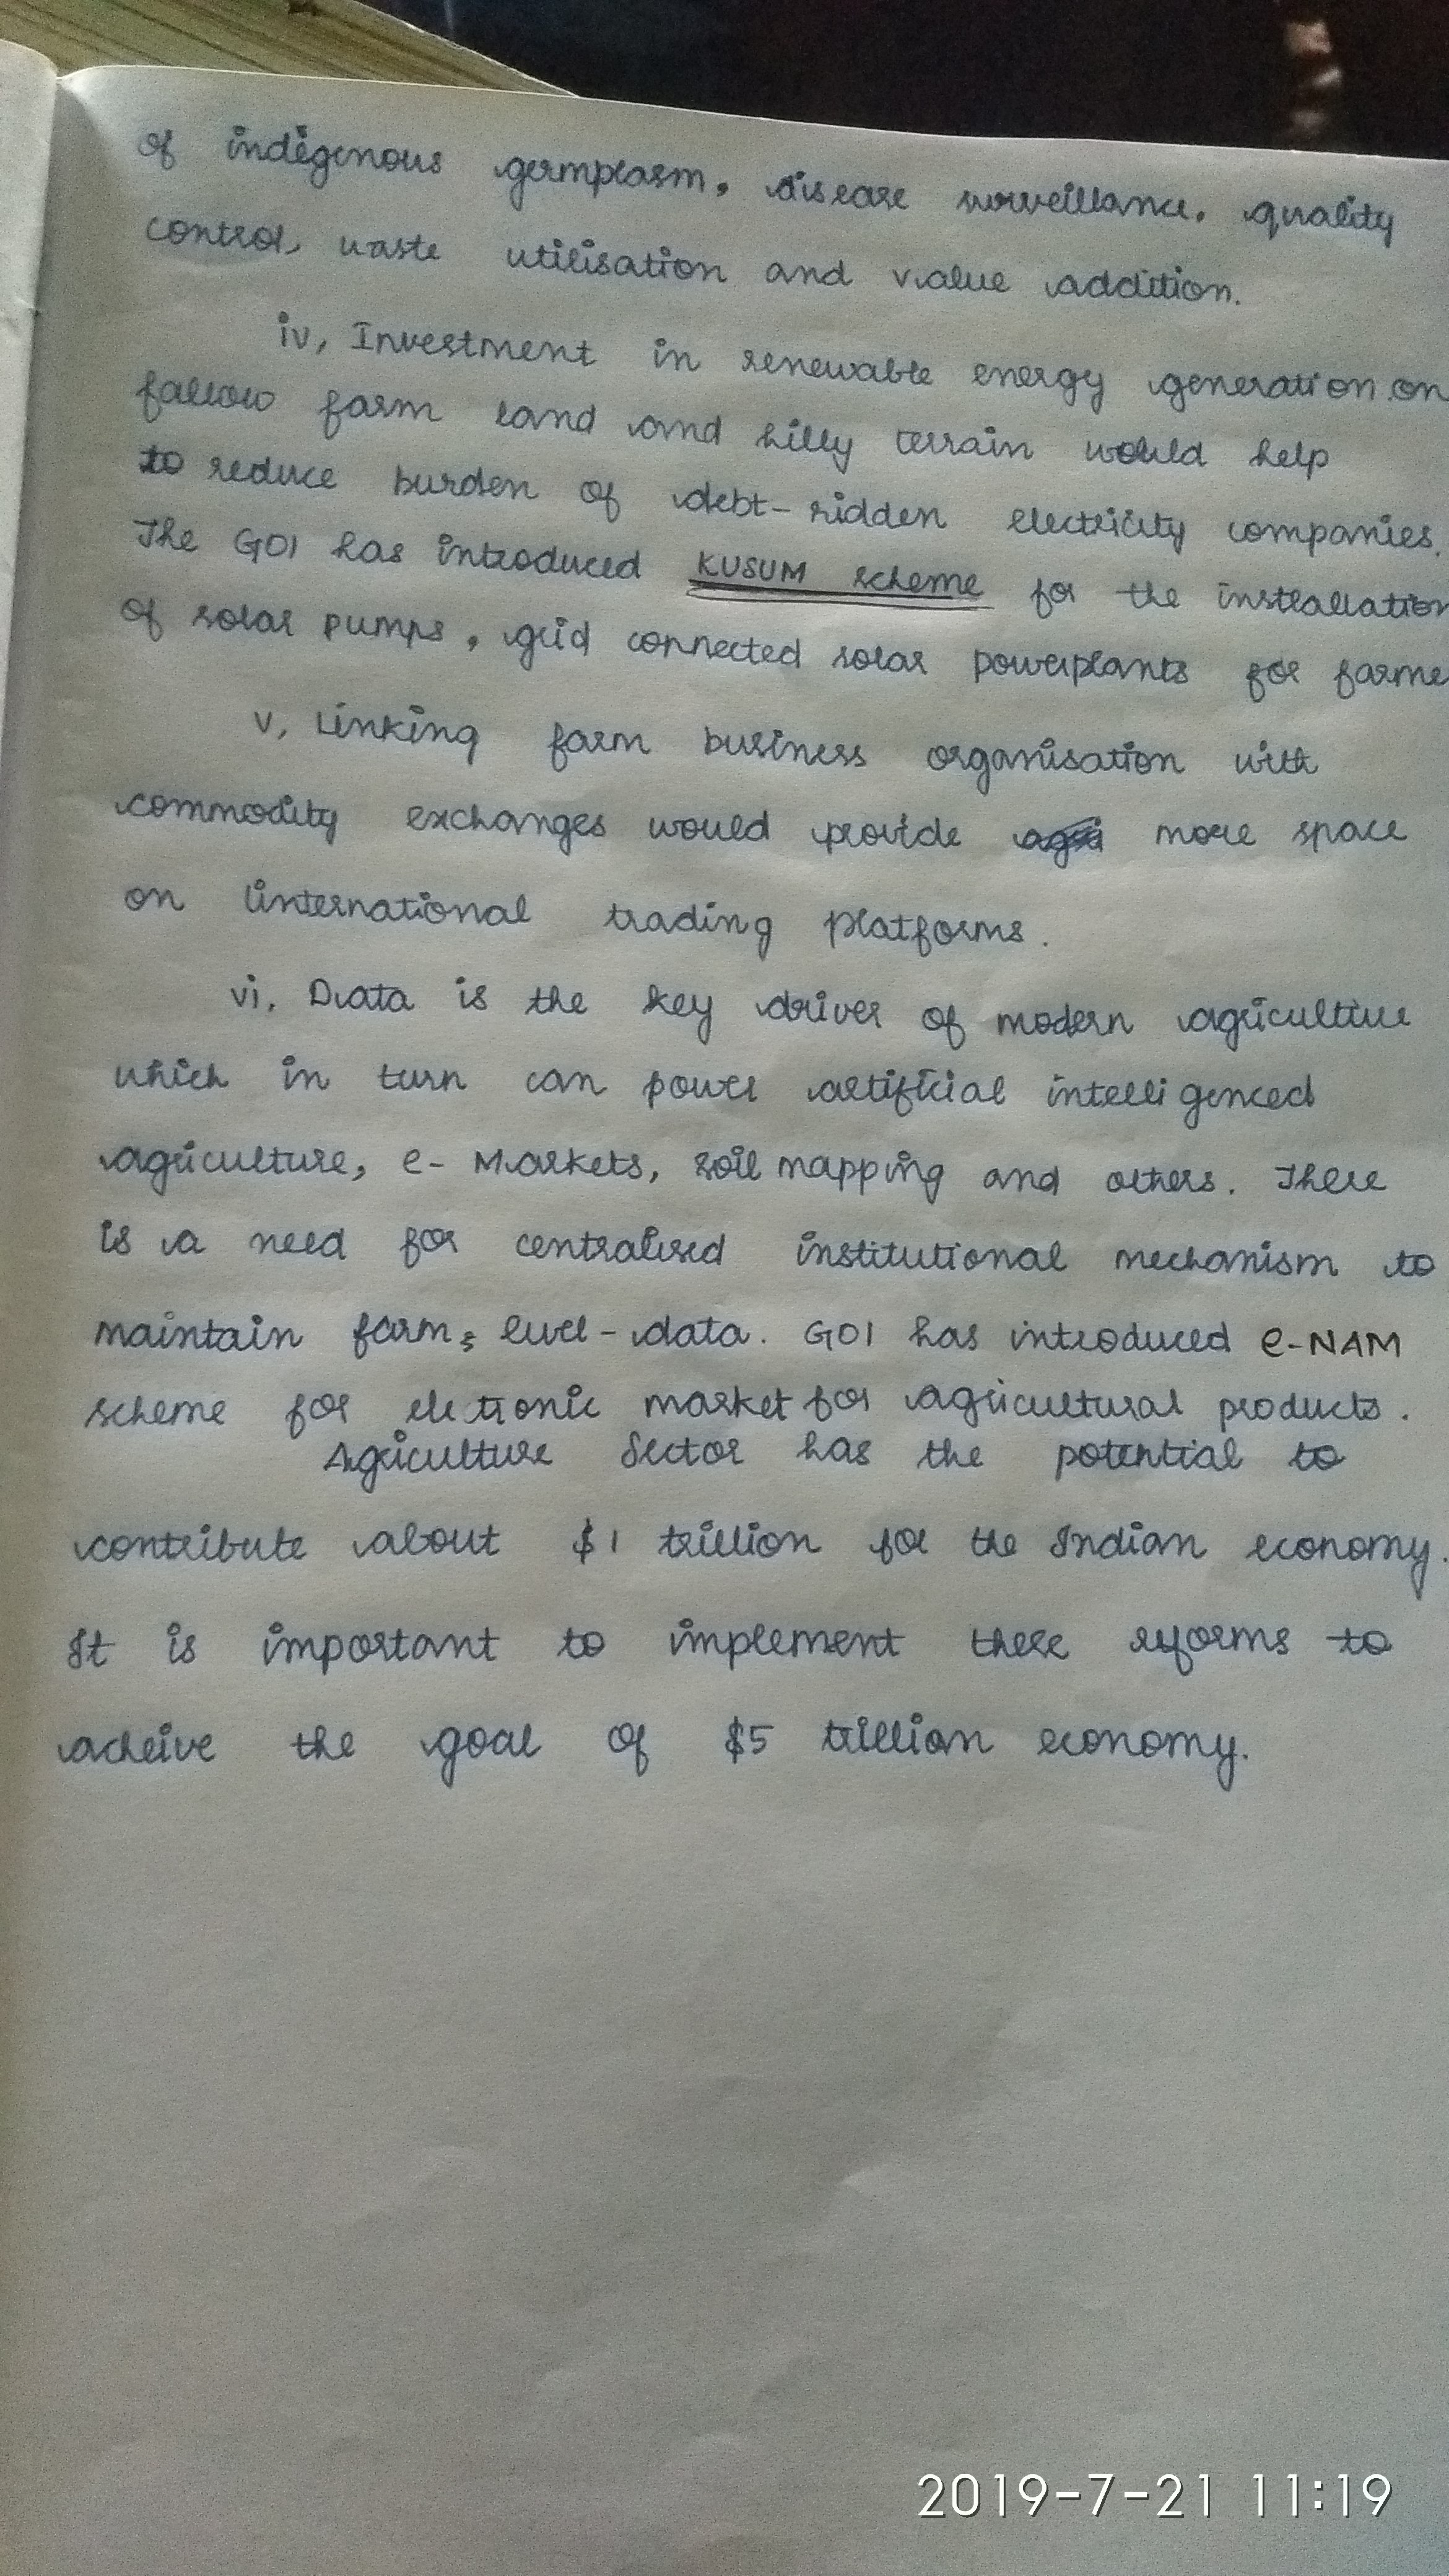 of indigenous germplasm, disease surveillance, quality
control, waste utilisation and value addition.
iv, Investment in renewable energy generation on
fallow farm land and hilly terrain would help
to reduce burden of debt-ridden electricity companies.
The GOI has introduced KUSUM scheme for the installation
of solar pumps, grid connected solar powerplants for farme
v, Linking farm business organisation with
commodity exchanges would provide more space
on international trading platforms.
vi, Data is the key driver of modern agriculture
which in turn can power artificial intelligenced
agriculture, e-Markets, soil mapping and others. There
is a need for centralised institutional mechanism to
maintain farm, level-data. GOI has introduced e-NAM
scheme for eletronic market for agricultural products.
Agriculture Sector has the potential to
contribute about $1 trillion for the Indian economy.
It is important to implement these reforms to
acheive the goal of $5 trillion economy.
2019-7-21 11:19